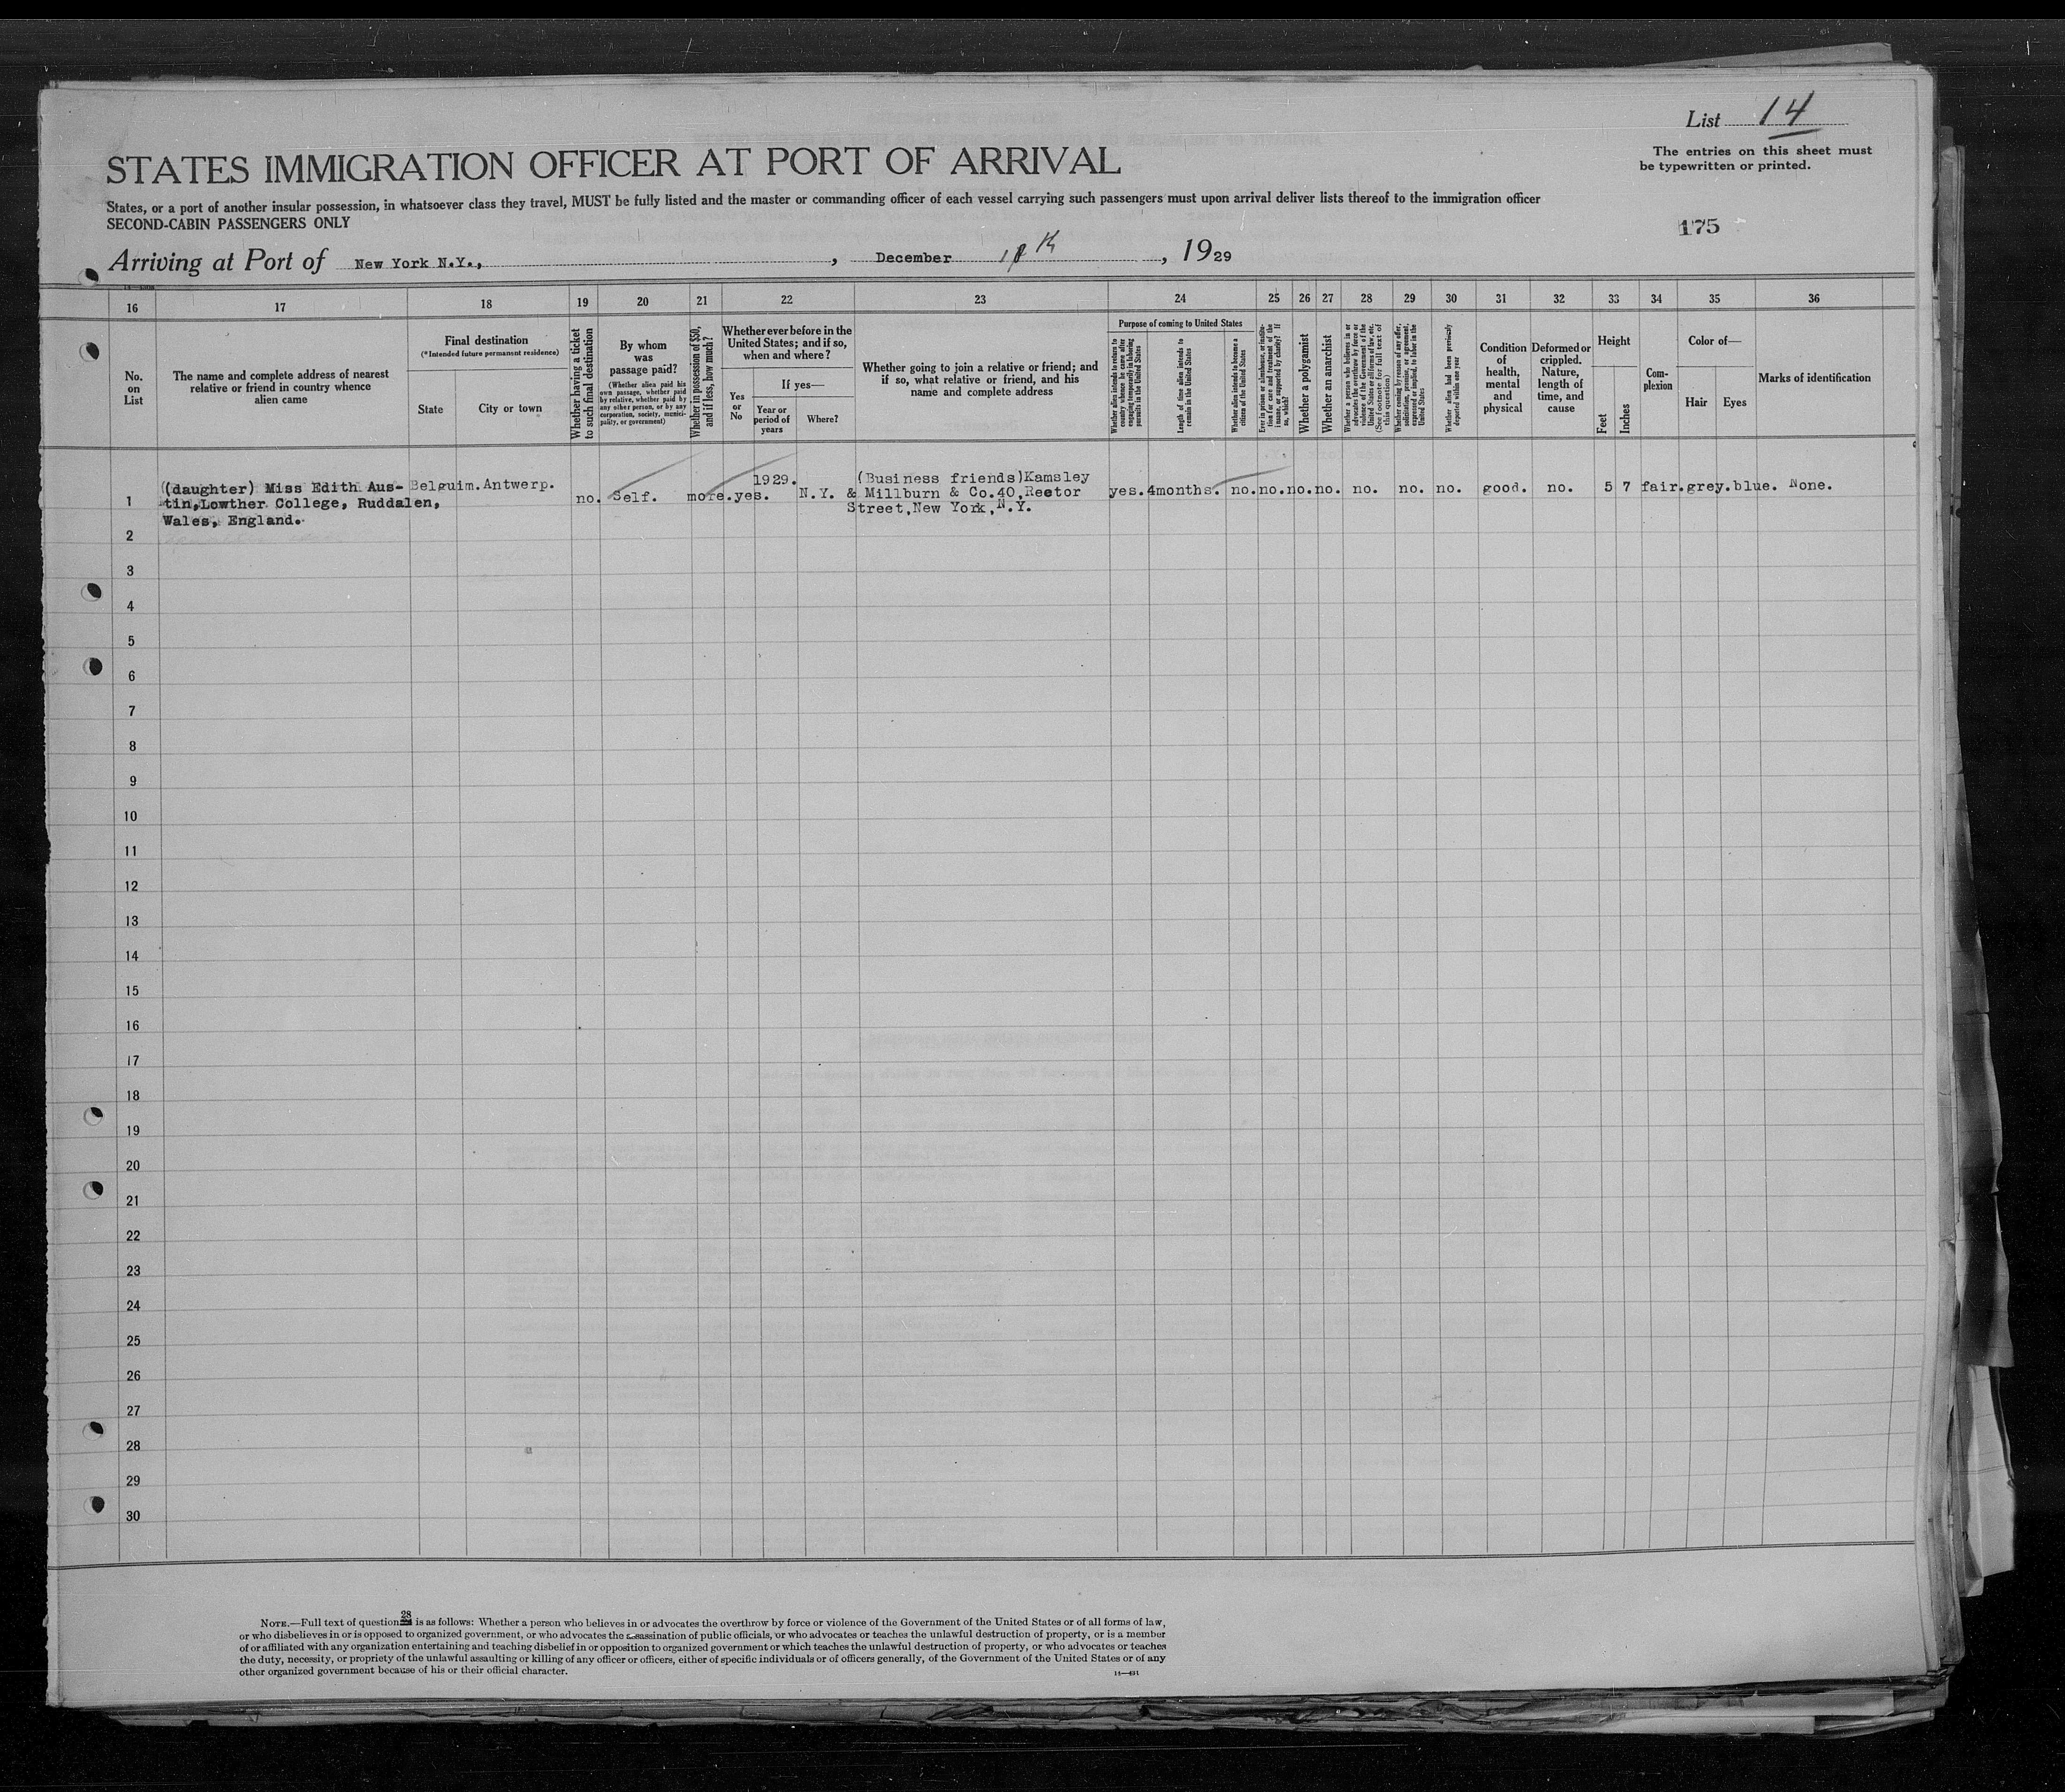 List 14
The entries on this sheet must
be typewritten or printed.
STATES IMMIGRATION OFFICER AT PORT OF ARRIVAL
States, or a port of another insular possession, in whatsoever class they travel, MUST be fully listed and the master or commanding officer of each vessel carrying such passengers must upon arrival deliver lists thereof to the immigration officer
SECOND-CABIN PASSENGERS ONLY
175
Arriving at Port of New York N.Y., , December th , 1929
16 17 18 19 20 21 22 23 24 25 26 27 28 29 30 31 32 33 34 35 36
No.
on
List
The name and complete address of nearest
relative or friend in country whence
alien came
Final destination
(*Intended future permanent residence)
State
City or town
Whether having a ticket
to such final destination
By whom
was
passage paid?
(Whether alien paid his
own passage, whether paid
by relative, whether paid by
any other person, or by any
corporation, society, munici-
pality, or government)
Whether in possession of $50,
and if less, how much?
Whether ever before in the
United States; and if so,
when and where?
Yes
or
No
If yes—
Year or
period of
years
Where?
Whether going to join a relative or friend; and
if so, what relative or friend, and his
name and complete address
Purpose of coming to United States
Whether alien intends to return to
country whence he came after
engaging temporarily in laboring
pursuits in the United States
Length of time alien intends to
remain in the United States
Whether alien intends to become a
citizen of the United States
Ever in prison or almshouse, or institu-
tion for care and treatment of the
insane, or supported by charity? If
so, which?
Whether a polygamist
Whether an anarchist
Whether a person who believes in or
advocates the overthrow by force or
violence of the Government of the
United States or all forms of law, etc.
(See footnote for full text of
this question)
Whether coming by reason of any offer,
solicitation, promise, or agreement,
expressed or implied, to labor in the
United States
Whether alien had been previously
deported within one year
Condition
of
health,
mental
and
physical
Deformed or
crippled.
Nature,
length of
time, and
cause
Height
Feet
Inches
Com-
plexion
Color of—
Hair Eyes
Marks of identification
1 (daughter) Miss Edith Aus- Belguim. Antwerp. no. Self. more. yes. 1929. N.Y. & (Business friends)Kamsley yes. 4months. no. no. no. no. no. no. no. good. no. 5 7 fair. grey. blue. None.
tin,Lowther College, Ruddalen, Millburn & Co.40,Rector
Wales, England. Street,New York,N.Y.
2
3
4
5
6
7
8
9
10
11
12
13
14
15
16
17
18
19
20
21
22
23
24
25
26
27
28
29
30
NOTE.—Full text of question 28 is as follows: Whether a person who believes in or advocates the overthrow by force or violence of the Government of the United States or of all forms of law,
or who disbelieves in or is opposed to organized government, or who advocates the assassination of public officials, or who advocates or teaches the unlawful destruction of property, or is a member
of or affiliated with any organization entertaining and teaching disbelief in or opposition to organized government or which teaches the unlawful destruction of property, or who advocates or teaches
the duty, necessity, or propriety of the unlawful assaulting or killing of any officer or officers, either of specific individuals or of officers generally, of the Government of the United States or of any
other organized government because of his or their official character.